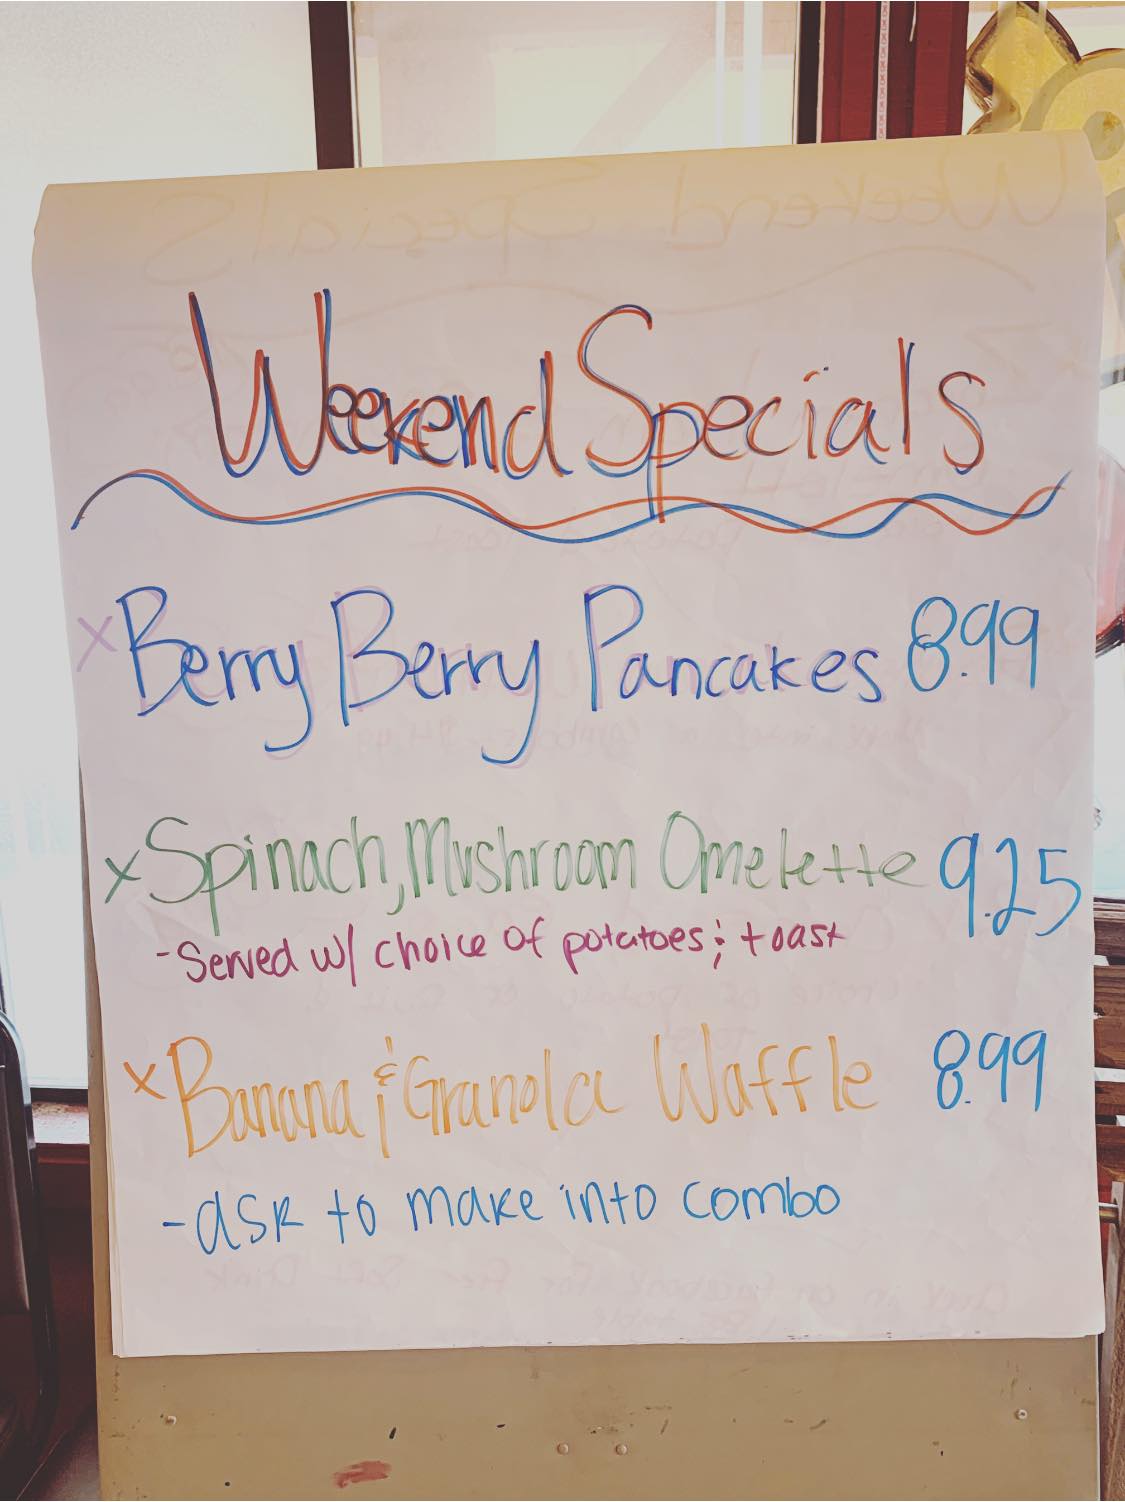 Weekend Specials
x Berry Berry Pancakes 8.99
x Spinach, Mushroom Omelette 9.25
- Served w/ choice of potatoes & toast
x Banana & Granola Waffle 8.99
- ask to make into combo